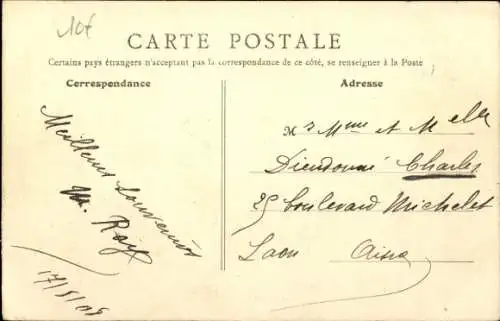 10f
CARTE POSTALE
Certains pays étrangers n'acceptant pas la correspondance de ce côté, se renseigner à la Poste
Correspondance
Adresse
Meilleurs Souvenirs
M. Roy
17/5/05
Mr Mme et Melle
Dieudonné Charles
25 boulevard Michelet
Laon Aisne